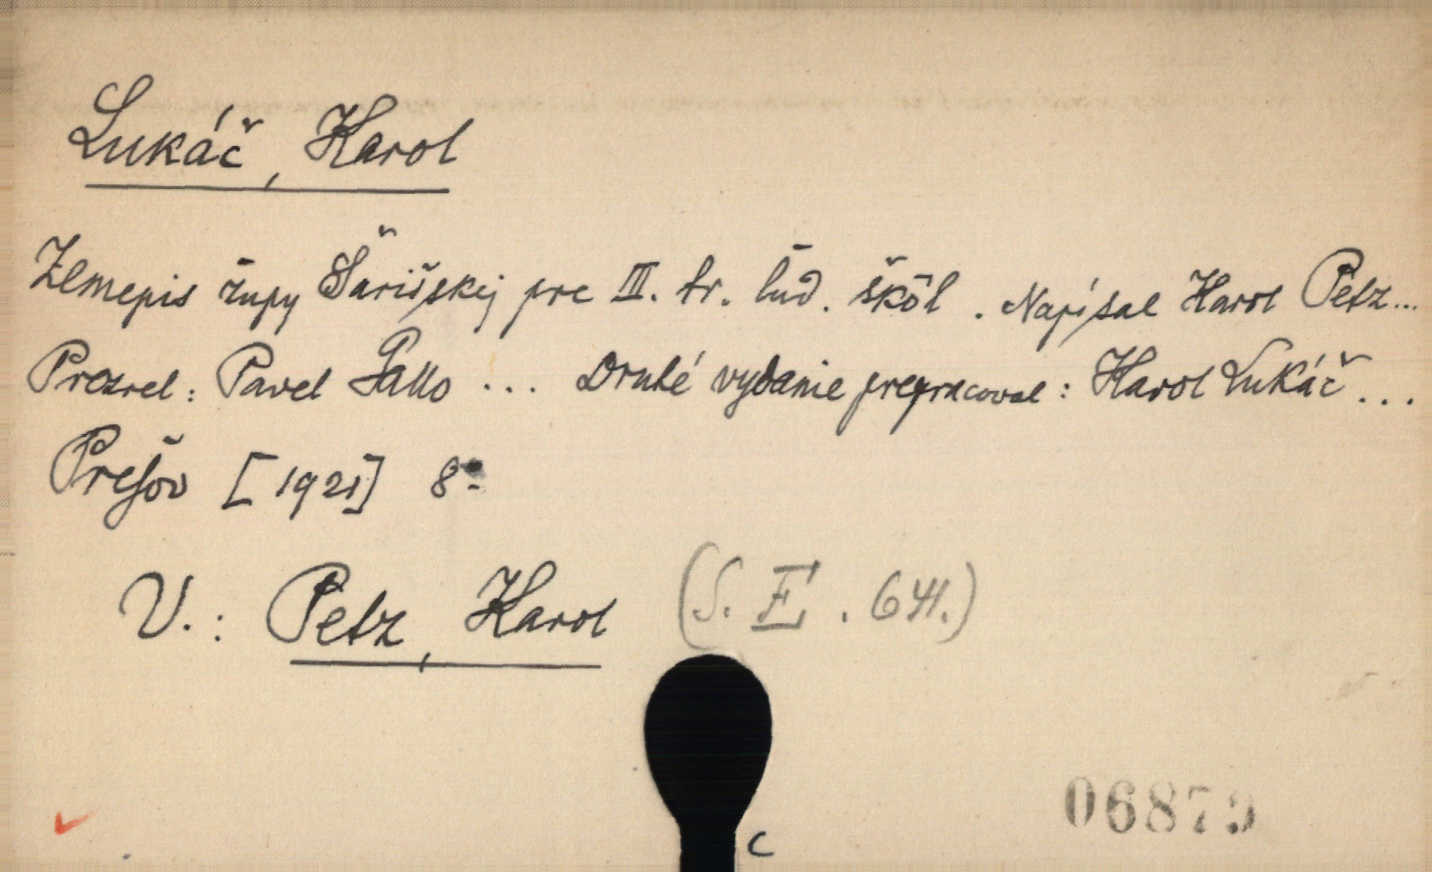 Lukáč, Karol
Zemepis župy Šarišskej pre III. tr. ľud. škôl. Napísal Karol Petz...
Prezrel: Pavel Gallo ... Druhé vydanie prepracoval: Karol Lukáč...
Prešov [1921] 8°
V.: Petz, Karol (S. E. 641.)
c